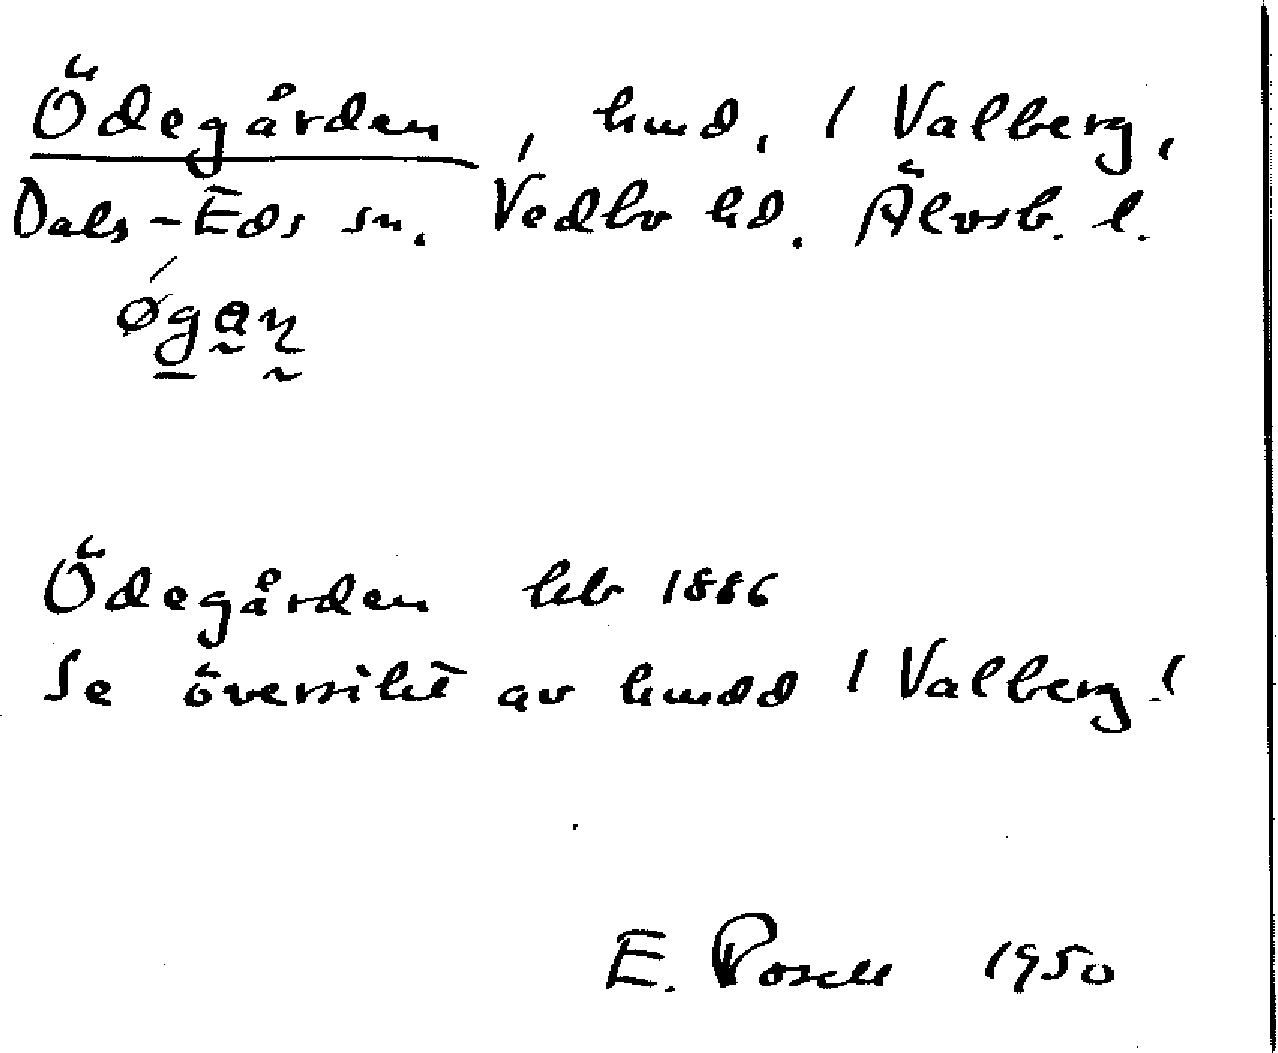 Ödegården, hmd. / Valberg,
Dals-Eds sn. Vedbo hd. Älvsb. l.
øgan
Ödegården hfb 1886
Se översikt av hmdd / Valberg!
E. 1950